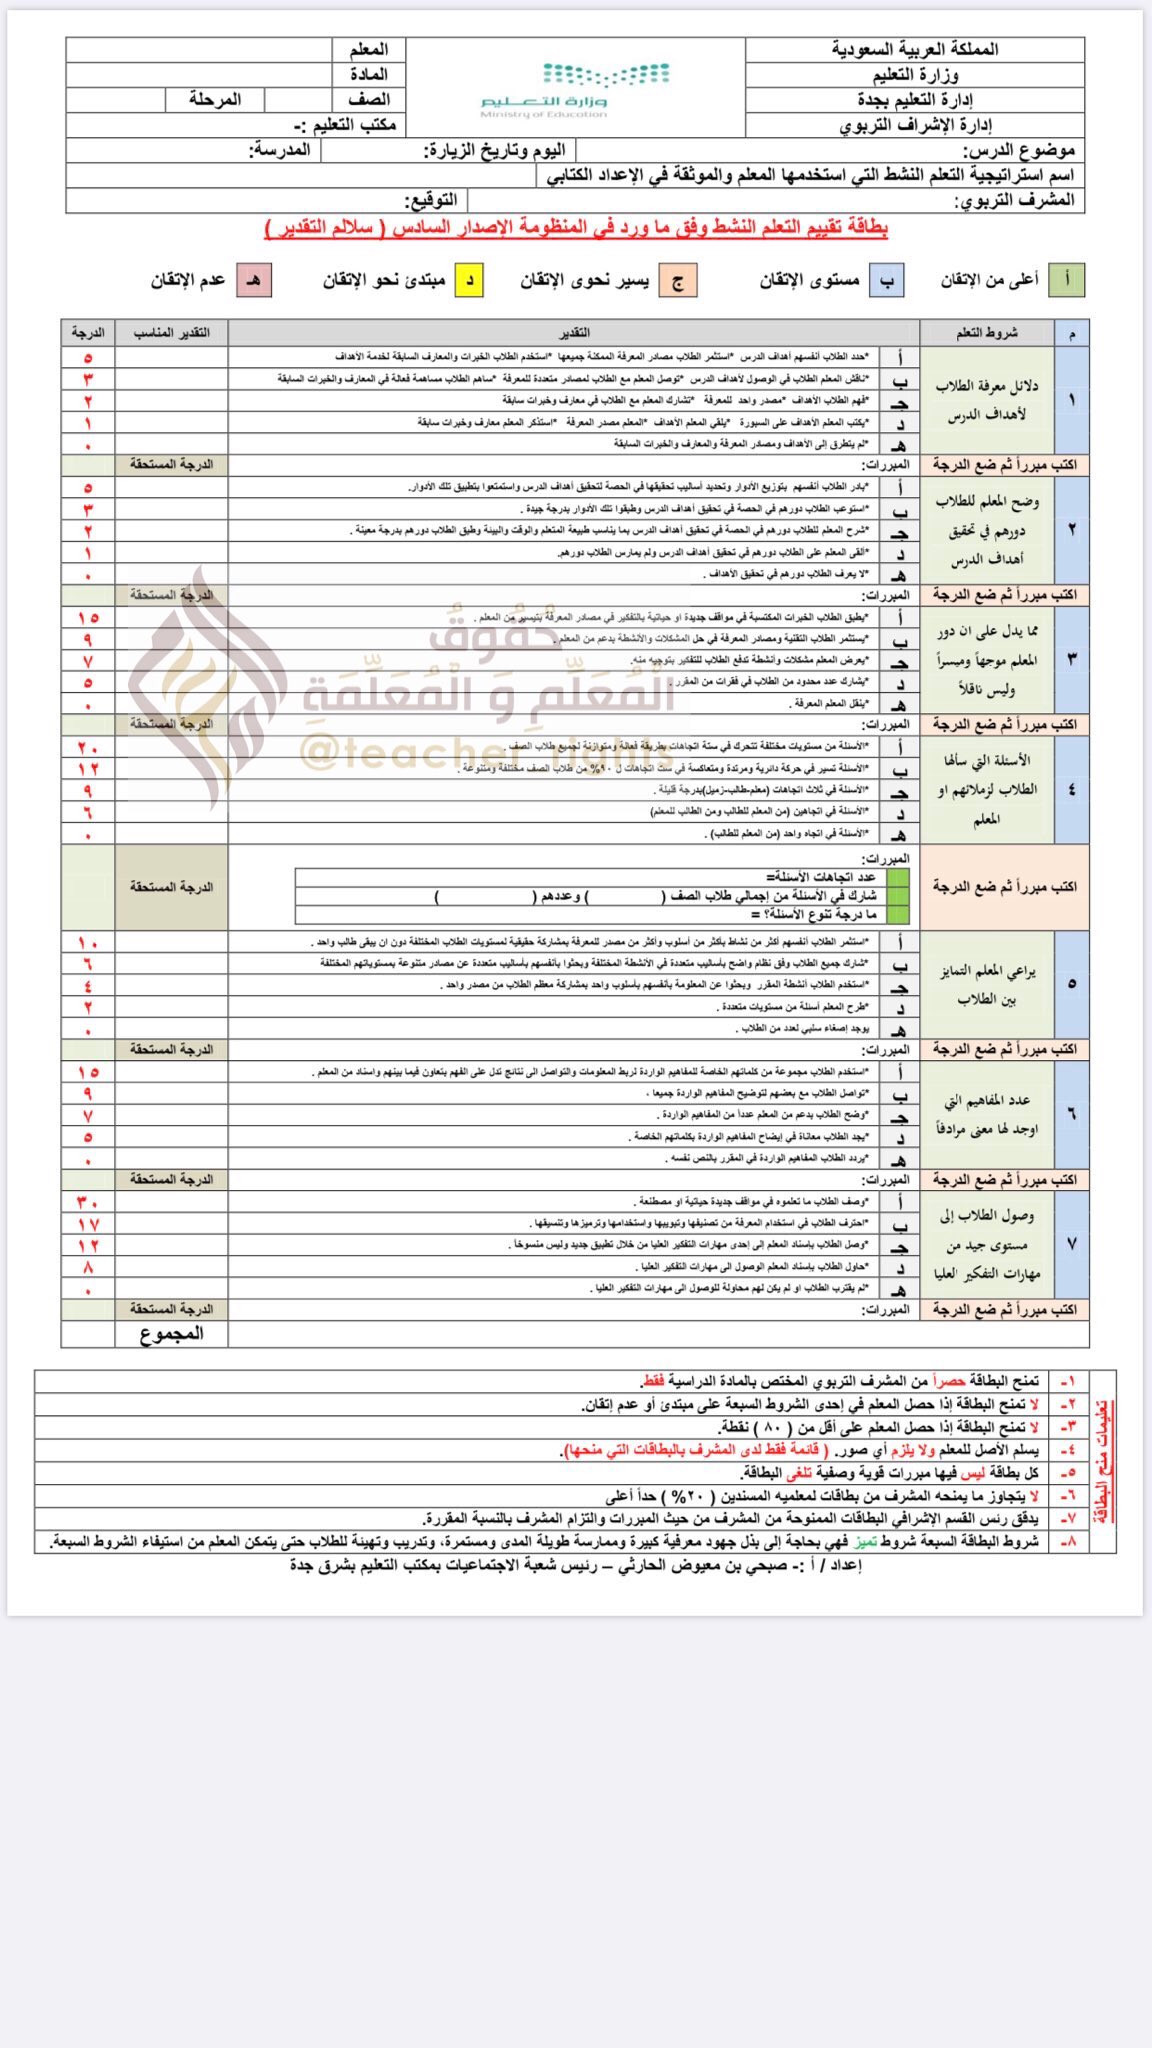 المملكة العربية السعودية
وزارة التعليم
إدارة التعليم بجدة
إدارة الإشراف التربوي
وزارة التعـليم
Ministry of Education
المعلم
المادة
الصف المرحلة
مكتب التعليم :-
موضوع الدرس: اليوم وتاريخ الزيارة: المدرسة:
اسم استراتيجية التعلم النشط التي استخدمها المعلم والموثقة في الإعداد الكتابي
المشرف التربوي: التوقيع:
بطاقة تقييم التعلم النشط وفق ما ورد في المنظومة الإصدار السادس ( سلالم التقدير )
أ أعلى من الإتقان ب مستوى الإتقان ج يسير نحوى الإتقان د مبتدئ نحو الإتقان هـ عدم الإتقان
م شروط التعلم التقدير التقدير المناسب الدرجة
١ دلائل معرفة الطلاب لأهداف الدرس
أ *حدد الطلاب أنفسهم أهداف الدرس *استثمر الطلاب مصادر المعرفة الممكنة جميعها *استخدم الطلاب الخبرات والمعارف السابقة لخدمة الأهداف ٥
ب *ناقش المعلم الطلاب في الوصول لأهداف الدرس *توصل المعلم مع الطلاب لمصادر متعددة للمعرفة *ساهم الطلاب مساهمة فعالة في المعارف والخبرات السابقة ٣
جـ *فهم الطلاب الأهداف *مصدر واحد للمعرفة *تشارك المعلم مع الطلاب في معارف وخبرات سابقة ٢
د *يكتب المعلم الأهداف على السبورة *يلقي المعلم الأهداف *المعلم مصدر المعرفة *استذكر المعلم معارف وخبرات سابقة ١
هـ *لم يتطرق إلى الأهداف ومصادر المعرفة والمعارف والخبرات السابقة ٠
اكتب مبرراً ثم ضع الدرجة المبررات: الدرجة المستحقة
٢ وضح المعلم للطلاب دورهم في تحقيق أهداف الدرس
أ *بادر الطلاب أنفسهم بتوزيع الأدوار وتحديد أساليب تحقيقها في الحصة لتحقيق أهداف الدرس واستمتعوا بتطبيق تلك الأدوار. ٥
ب *استوعب الطلاب دورهم في الحصة في تحقيق أهداف الدرس وطبقوا تلك الأدوار بدرجة جيدة . ٣
جـ *شرح المعلم للطلاب دورهم في الحصة في تحقيق أهداف الدرس بما يناسب طبيعة المتعلم والوقت والبيئة وطبق الطلاب دورهم بدرجة معينة . ٢
د *ألقى المعلم على الطلاب دورهم في تحقيق أهداف الدرس ولم يمارس الطلاب دورهم. ١
هـ *لا يعرف الطلاب دورهم في تحقيق الأهداف . ٠
اكتب مبرراً ثم ضع الدرجة المبررات: الدرجة المستحقة
٣ مما يدل على ان دور المعلم موجهاً وميسراً وليس ناقلاً
أ *يطبق الطلاب الخبرات المكتسبة في مواقف جديدة او حياتية بالتفكير في مصادر المعرفة بتيسير من المعلم . ١٥
ب *يستثمر الطلاب التقنية ومصادر المعرفة في حل المشكلات والأنشطة بدعم من المعلم . ٩
جـ *يعرض المعلم مشكلات وأنشطة تدفع الطلاب للتفكير بتوجيه منه. ٧
د *يشارك عدد محدود من الطلاب في فقرات من المقرر . ٥
هـ *ينقل المعلم المعرفة . ٠
حُقُوقُ
الْمُعَلِّمِ وَ الْمُعَلِّمَةِ
@teacher_rights
اكتب مبرراً ثم ضع الدرجة المبررات: الدرجة المستحقة
٤ الأسئلة التي سألها الطلاب لزملائهم او المعلم
أ *الأسئلة من مستويات مختلفة تتحرك في ستة اتجاهات بطريقة فعالة ومتوازنة لجميع طلاب الصف . ٢٠
ب *الأسئلة تسير في حركة دائرية ومرتدة ومتعاكسة في ست اتجاهات ل ٩٠% من طلاب الصف مختلفة ومتنوعة . ١٢
جـ *الأسئلة في ثلاث اتجاهات (معلم-طالب-زميل)بدرجة قليلة . ٩
د *الأسئلة في اتجاهين (من المعلم للطالب ومن الطالب للمعلم) ٦
هـ *الأسئلة في اتجاه واحد (من المعلم للطالب) . ٠
اكتب مبرراً ثم ضع الدرجة المبررات: الدرجة المستحقة
عدد اتجاهات الأسئلة=
شارك في الأسئلة من إجمالي طلاب الصف ( ) وعددهم ( )
ما درجة تنوع الأسئلة؟ =
٥ يراعي المعلم التمايز بين الطلاب
أ *استثمر الطلاب أنفسهم أكثر من نشاط بأكثر من أسلوب وأكثر من مصدر للمعرفة بمشاركة حقيقية لمستويات الطلاب المختلفة دون ان يبقى طالب واحد . ١٠
ب *شارك جميع الطلاب وفق نظام واضح بأساليب متعددة في الأنشطة المختلفة وبحثوا بأنفسهم بأساليب متعددة عن مصادر متنوعة بمستوياتهم المختلفة ٦
جـ *استخدم الطلاب أنشطة المقرر وبحثوا عن المعلومة بأنفسهم بأسلوب واحد بمشاركة معظم الطلاب من مصدر واحد . ٤
د *طرح المعلم أسئلة من مستويات متعددة . ٢
هـ يوجد إصغاء سلبي لعدد من الطلاب . ٠
اكتب مبرراً ثم ضع الدرجة المبررات: الدرجة المستحقة
٦ عدد المفاهيم التي اوجد لها معنى مرادفاً
أ *استخدم الطلاب مجموعة من كلماتهم الخاصة للمفاهيم الواردة لربط المعلومات والتواصل الى نتائج تدل على الفهم بتعاون فيما بينهم واسناد من المعلم . ١٥
ب *تواصل الطلاب مع بعضهم لتوضيح المفاهيم الواردة جميعا . ٩
جـ *وضح الطلاب بدعم من المعلم عدداً من المفاهيم الواردة . ٧
د *يجد الطلاب معاناة في إيضاح المفاهيم الواردة بكلماتهم الخاصة . ٥
هـ *يردد الطلاب المفاهيم الواردة في المقرر بالنص نفسه . ٠
اكتب مبرراً ثم ضع الدرجة المبررات: الدرجة المستحقة
٧ وصول الطلاب إلى مستوى جيد من مهارات التفكير العليا
أ *وصف الطلاب ما تعلموه في مواقف جديدة حياتية او مصطنعة . ٣٠
ب *احترف الطلاب في استخدام المعرفة من تصنيفها وتبويبها واستخدامها وترميزها وتنسيقها . ١٧
جـ *وصل الطلاب بإسناد المعلم إلى إحدى مهارات التفكير العليا من خلال تطبيق جديد وليس منسوخاً . ١٢
د *حاول الطلاب بإسناد المعلم الوصول الى مهارات التفكير العليا . ٨
هـ *لم يقترب الطلاب او لم يكن لهم محاولة للوصول الى مهارات التفكير العليا . ٠
اكتب مبرراً ثم ضع الدرجة المبررات: الدرجة المستحقة
المجموع
تعليمات منح البطاقة
١- تمنح البطاقة حصراً من المشرف التربوي المختص بالمادة الدراسية فقط.
٢- لا تمنح البطاقة إذا حصل المعلم في إحدى الشروط السبعة على مبتدئ أو عدم إتقان.
٣- لا تمنح البطاقة إذا حصل المعلم على أقل من ( ٨٠ ) نقطة.
٤- يسلم الأصل للمعلم ولا يلزم أي صور. ( قائمة فقط لدى المشرف بالبطاقات التي منحها).
٥- كل بطاقة ليس فيها مبررات قوية وصفية تلغى البطاقة.
٦- لا يتجاوز ما يمنحه المشرف من بطاقات لمعلميه المسندين ( ٢٠% ) حداً أعلى
٧- يدقق رئس القسم الإشرافي البطاقات الممنوحة من المشرف من حيث المبررات والتزام المشرف بالنسبة المقررة.
٨- شروط البطاقة السبعة شروط تميز فهي بحاجة إلى بذل جهود معرفية كبيرة وممارسة طويلة المدى ومستمرة، وتدريب وتهيئة للطلاب حتى يتمكن المعلم من استيفاء الشروط السبعة.
إعداد / أ :- صبحي بن معيوض الحارثي – رئيس شعبة الاجتماعيات بمكتب التعليم بشرق جدة